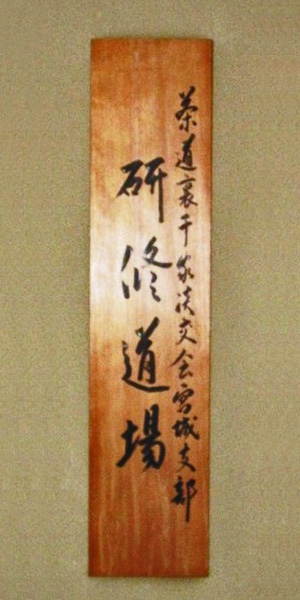 茶道裏千家淡交会宮城支部
研修道場